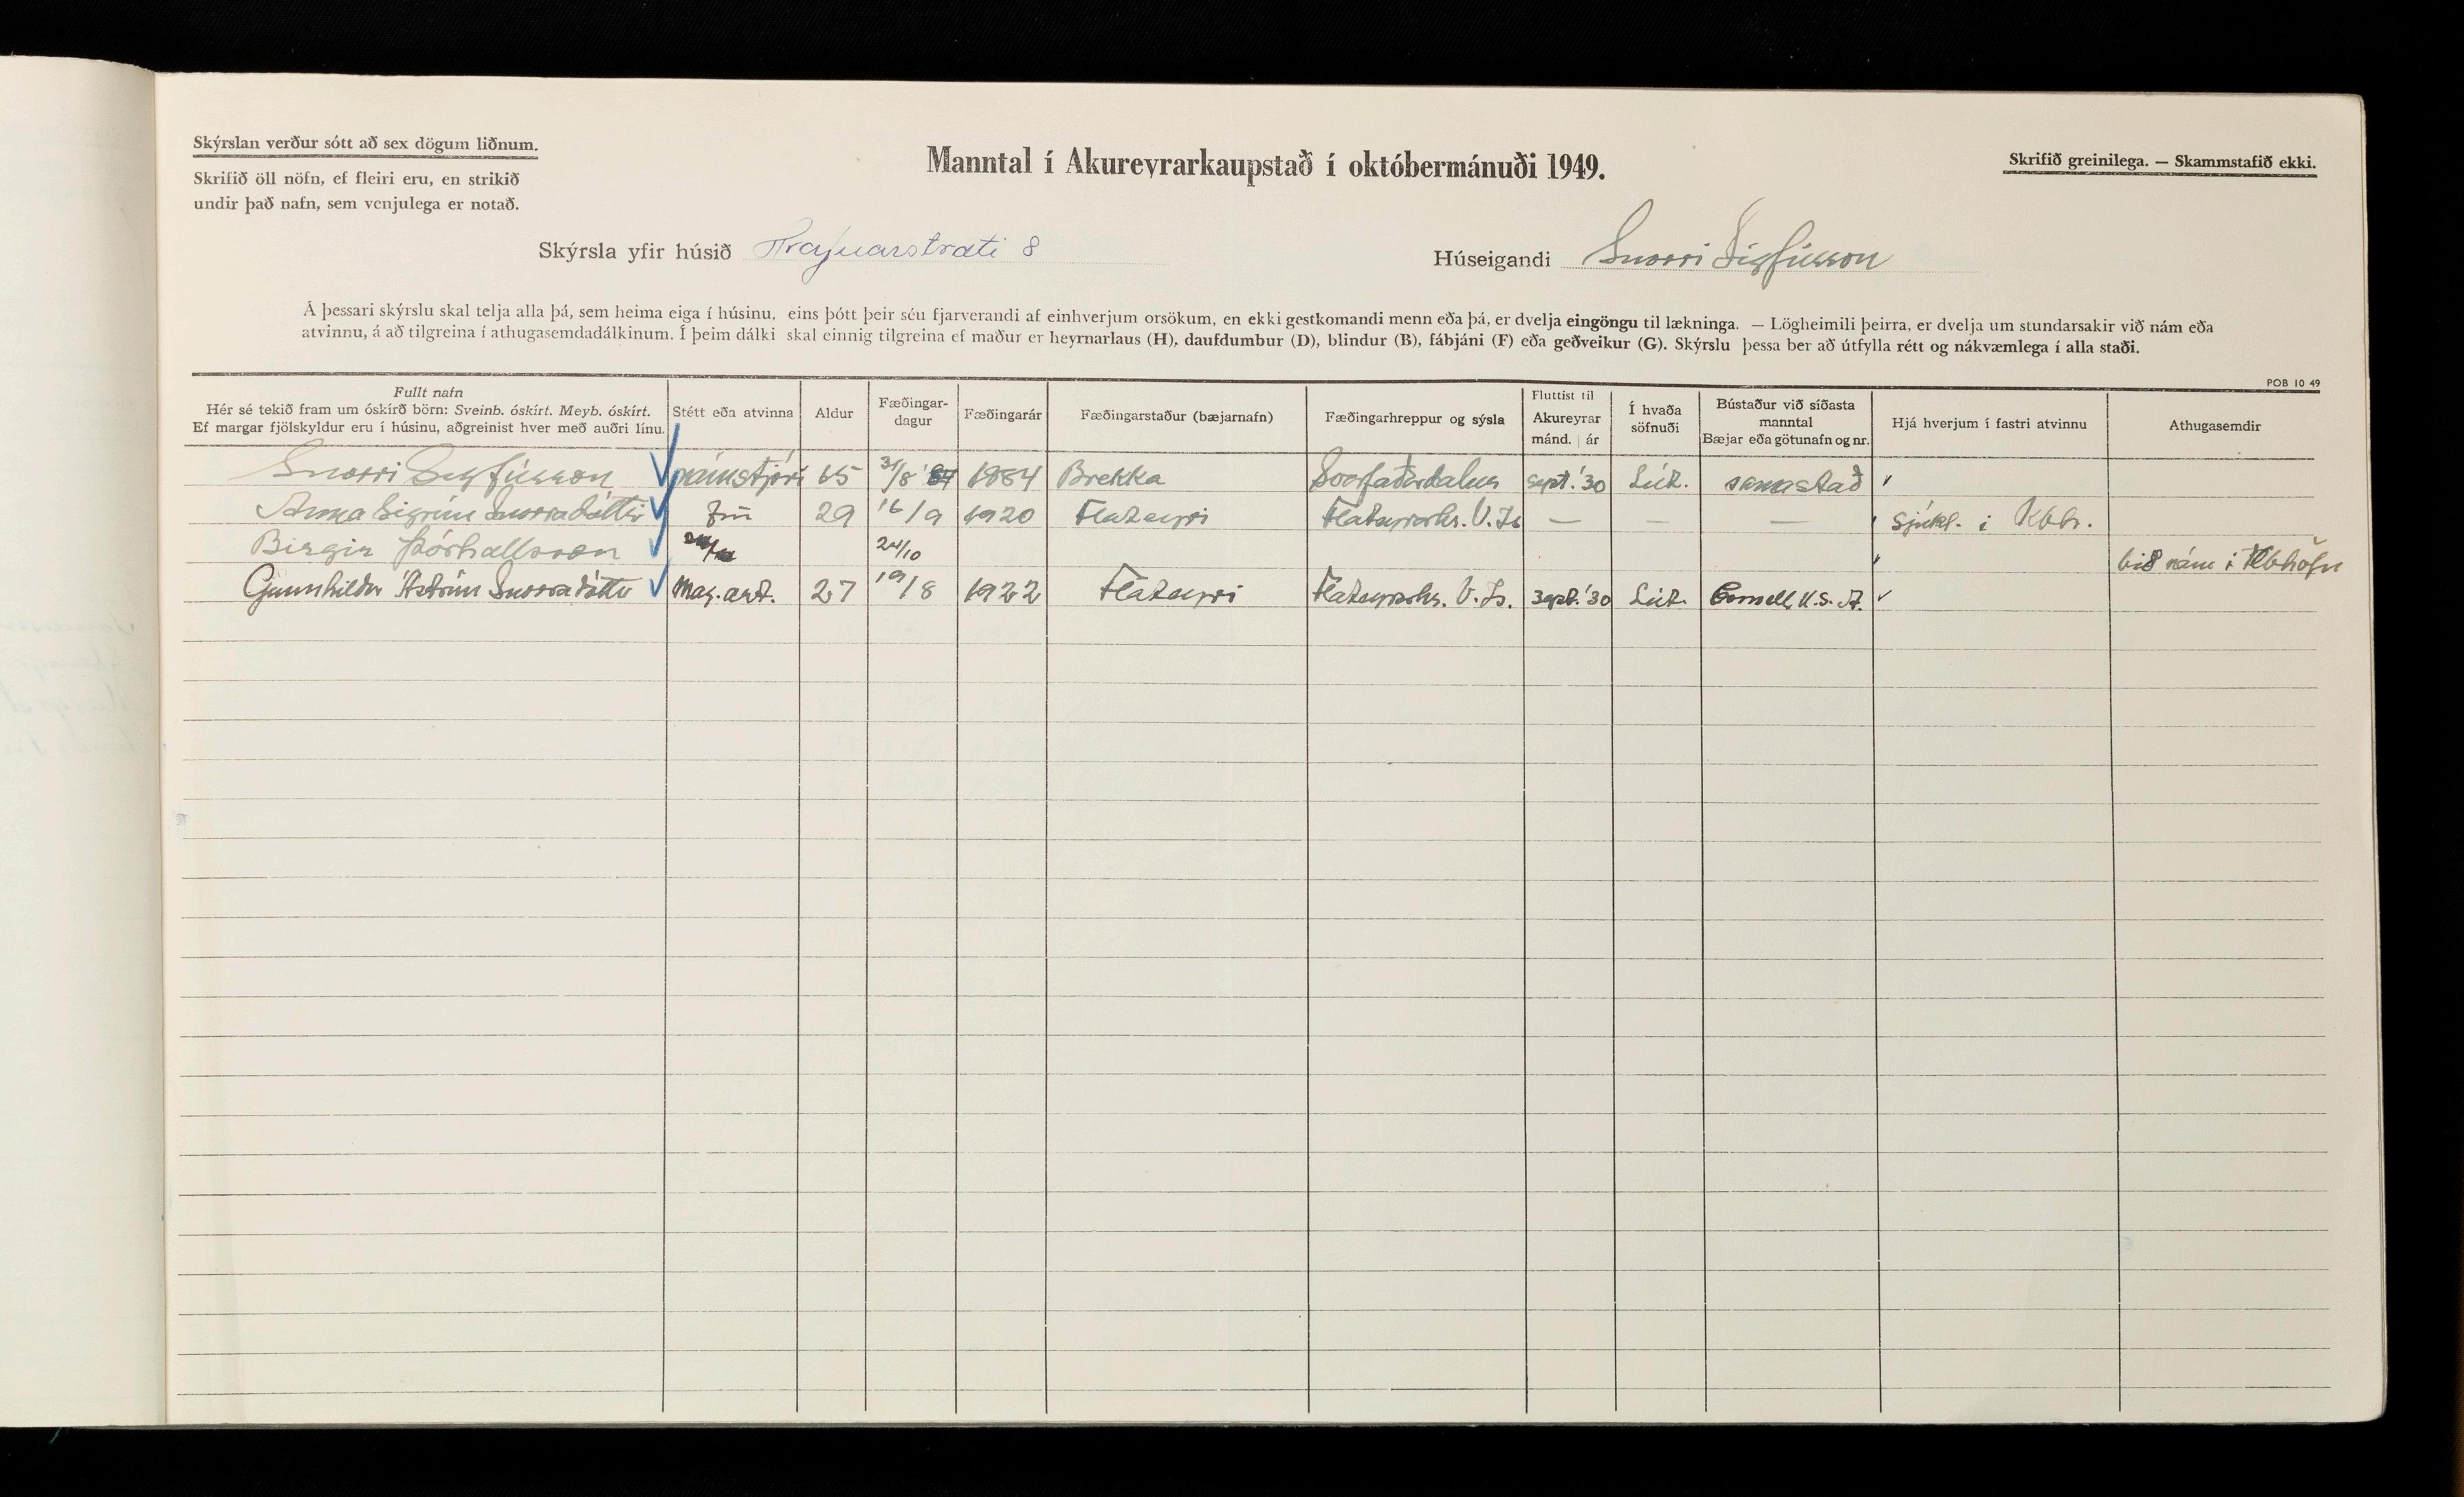 Skýrslan verður sótt að sex dögum liðnum.
Skrifið öll nöfn, ef fleiri eru, en strikið
undir það nafn, sem venjulega er notað.
Manntal í Akureyrarkaupstað í októbermánuði 1949.
Skrifið greinilega. — Skammstafið ekki.
Skýrsla yfir húsið 8
Húseigandi Snorri Sigfússon
Á þessari skýrslu skal telja alla þá, sem heima eiga í húsinu, eins þótt þeir séu fjarverandi af einhverjum orsökum, en ekki gestkomandi menn eða þá, er dvelja eingöngu til lækninga. — Lögheimili þeirra, er dvelja um stundarsakir við nám eða
atvinnu, á að tilgreina í athugasemdadálkinum. Í þeim dálki skal einnig tilgreina ef maður er heyrnarlaus (H), daufdumbur (D), blindur (B), fábjáni (F) eða geðveikur (G). Skýrslu þessa ber að útfylla rétt og nákvæmlega í alla staði.
POB 10 49
Fullt nafn
Hér sé tekið fram um óskírð börn: Sveinb. óskírt. Meyb. óskírt.
Ef margar fjölskyldur eru í húsinu, aðgreinist hver með auðri línu.
Stétt eða atvinna
Aldur
Fæðingar-
dagur
Fæðingarár
Fæðingarstaður (bæjarnafn)
Fæðingarhreppur og sýsla
Fluttist til
Akureyrar
mánd. | ár
Í hvaða
söfnuði
Bústaður við síðasta
manntal
Bæjar eða götunafn og nr.
Hjá hverjum í fastri atvinnu
Athugasemdir
Snorri Sigfússon námstjóri 65 31/8 1884 Brekka Svarfaðardalur sept. '30 Lút. samastað
Anna Sigrún Snorradóttir frú 29 16/9 1920 Flateyri Flateyrarhr. V. Ís — — — Sjúkl. í Kbh.
Birgir Þórhallsson 24/10 við nám í Kbhöfn
Gunnhildur Ástrún Snorradóttir Mag. art. 27 19/8 1922 Flateyri Flateyrarhr. V. Ís. sept. '30 Lút. Cornell, U.S.A.